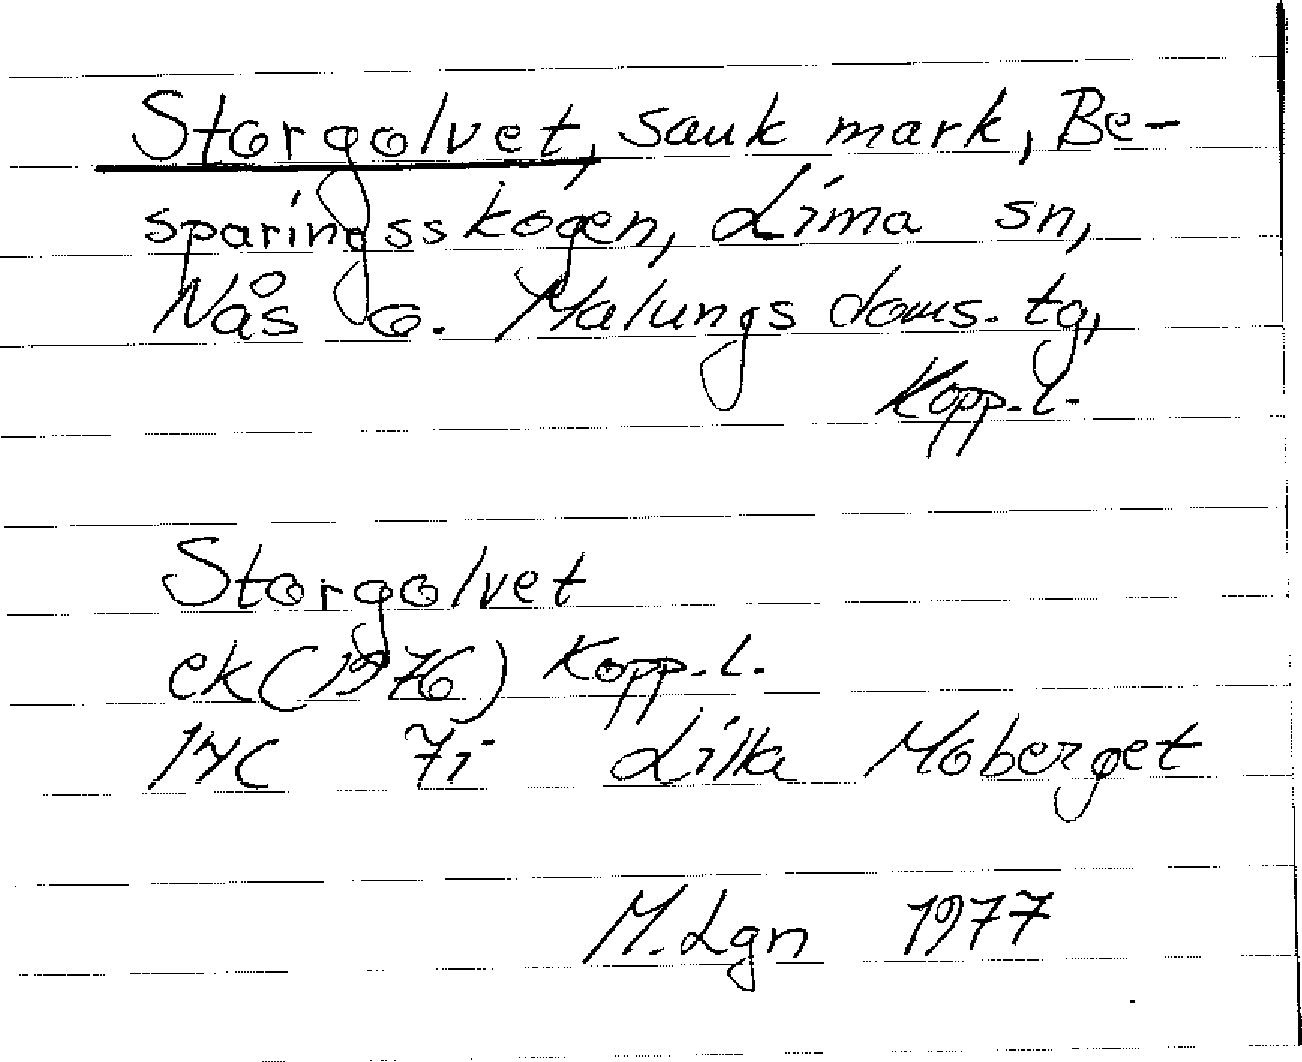 Storgolvet, sank mark, Be-
sparingsskogen, Lima sn,
Nås o. Malungs doms. tg,
Kopp. l.
Storgolvet
ek (1976) Kopp. l.
14C 7i Lilla Moberget
M. Lgn 1977